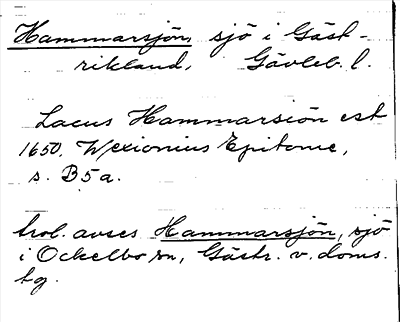 Hammarsjön, sjö i Gäst-
rikland, Gävleb. l.
Lacus Hammarsiön est
1650. Wexionius Epitome,
s. B5a.
trol. avses Hammarsjön, sjö
i Ockelbo sn, Gästr. v. doms.
tg.